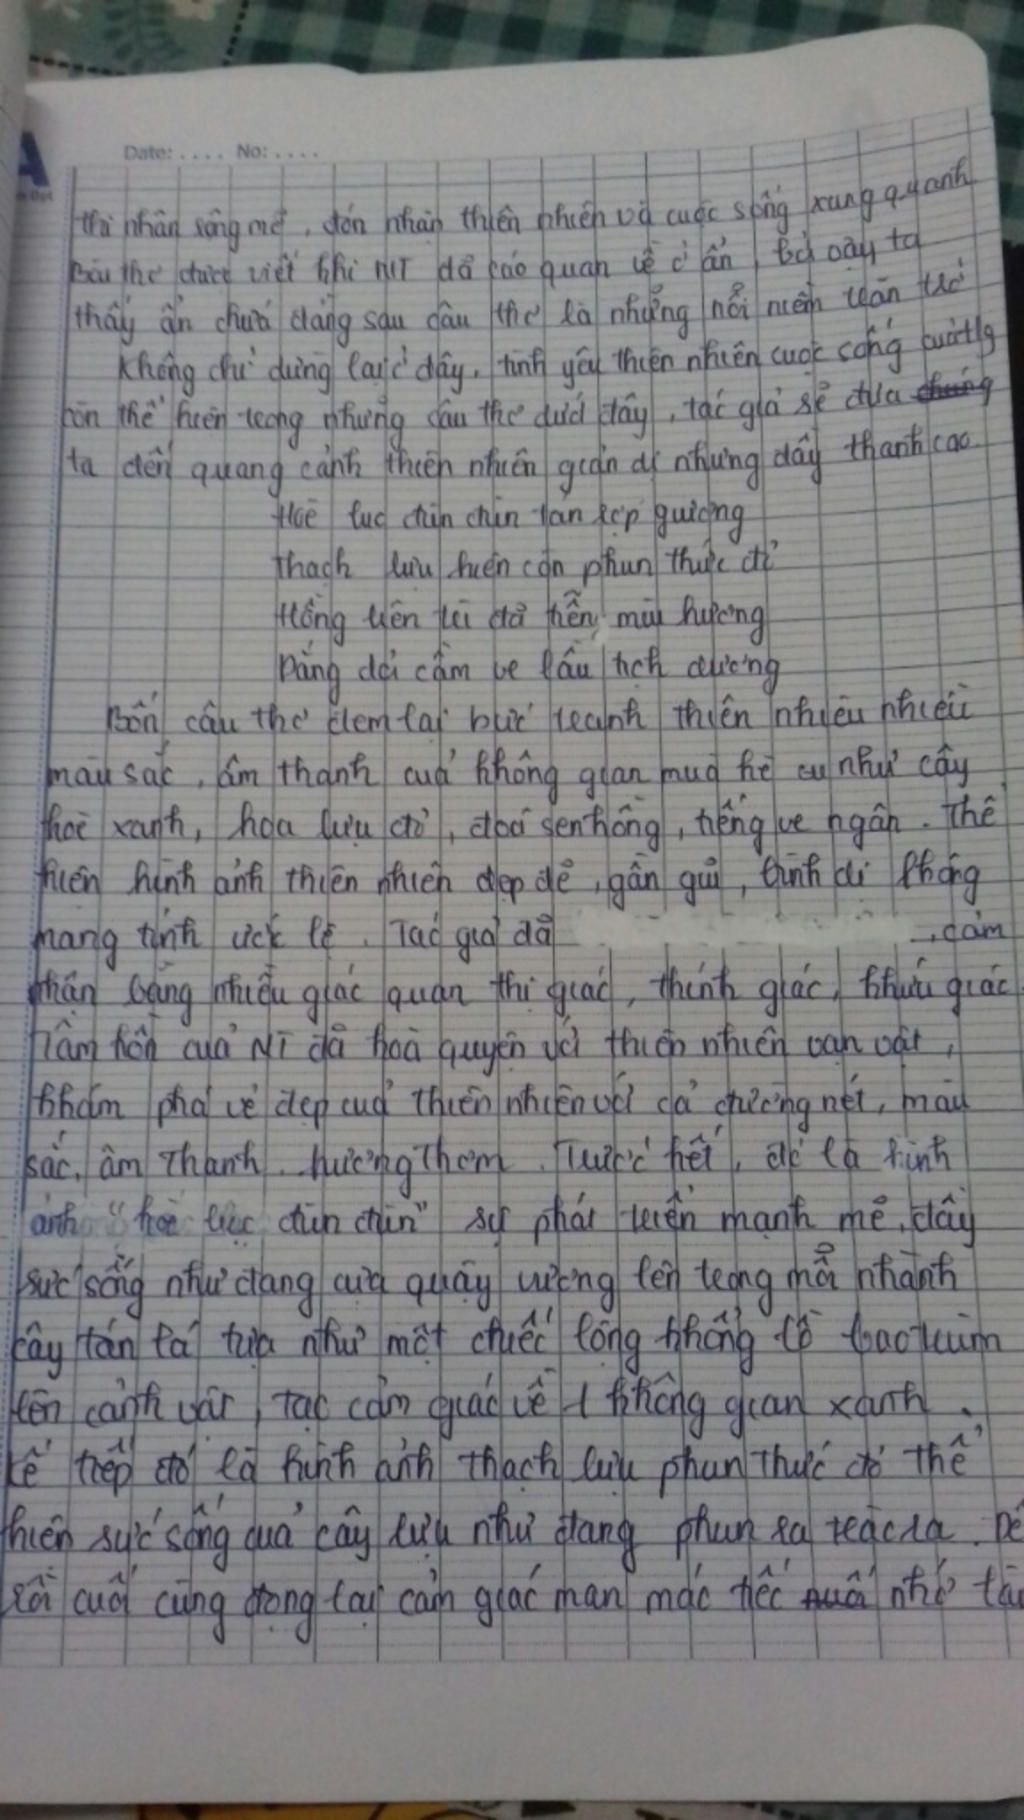 Date: .... No: ....
thi nhân rộng mở, đón nhận thiên nhiên và cuộc sống xung quanh
Bài thơ được viết khi NT đã cáo quan về ở ẩn, bởi vậy ta
thấy ẩn chứa đằng sau câu thơ là những nỗi niềm trăn trở
Không chỉ dừng lại ở đây, tình yêu thiên nhiên cuộc sống của tg
còn thể hiện trong những câu thơ dưới đây, tác giả sẽ đưa chúng
ta đến quang cảnh thiên nhiên giản dị nhưng đầy thanh cao
Hoè lục đùn đùn tán rợp giương
Thạch lựu hiên còn phun thức đỏ
Hồng liên trì đã tiễn mùi hương
Dắng dỏi cầm ve lầu tịch dương
Bốn câu thơ đem lại bức tranh thiên nhiên nhiều
màu sắc, âm thanh của không gian mùa hè như cây
hoè xanh, hoa lựu đỏ, đoá sen hồng, tiếng ve ngân. Thể
hiện hình ảnh thiên nhiên đẹp đẽ, gần gũi, bình dị không
mang tính ước lệ. Tác giả đã , cảm
nhận bằng nhiều giác quan thị giác, thính giác, khứu giác
Tâm hồn của NT đã hoà quyện với thiên nhiên vạn vật,
khám phá vẻ đẹp của thiên nhiên với cả đường nét, màu
sắc, âm thanh, hương thơm. Trước hết, đó là hình
ảnh "hoè lục đùn đùn" sự phát triển mạnh mẽ, đầy
sức sống như đang cựa quậy vương lên trong mỗi nhành
cây tán lá tựa như một chiếc lọng khổng lồ bao trùm
lên cảnh vật, tạo cảm giác về 1 không gian xanh.
Kế tiếp đó là hình ảnh thạch lựu phun thức đỏ thể
hiện sức sống của cây lựu như đang phun ra trào ra. Để
rồi cuối cùng đọng lại cảm giác man mác tiếc nuối nhớ